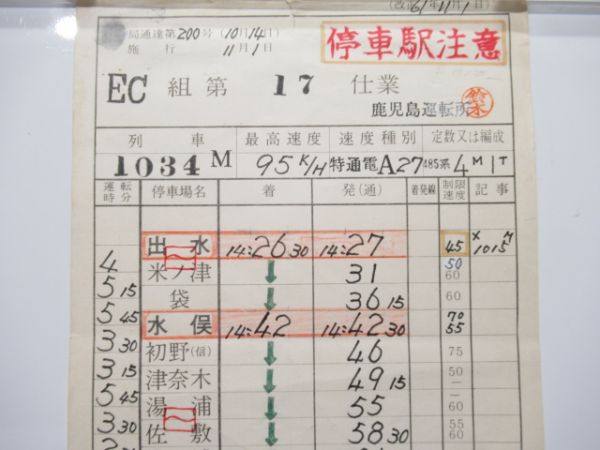 (改正61年11月1日)
局通達第200号 (10月14日)
施行 11月1日
停車駅注意
EC 組第 17 仕業
鹿児島運転所
鈴木
列車 最高速度 速度種別 定数又は編成
1034M 95K/H 特通電A27 485系4M1T
運転時分 停車場名 着 発(通) 着発線 制限速度 記事
出水 14:26 30 14:27 45 × M 1015
4 米ノ津 ↓ 31 50 60
5 15 袋 ↓ 36 15 60
5 45 水俣 14:42 14:42 30 70 55
3 30 初野(信) ↓ 46 75
3 15 津奈木 ↓ 49 15 50 –
5 45 湯浦 ↓ 55 – 60
3 30 佐敷 ↓ 58 30 55 60